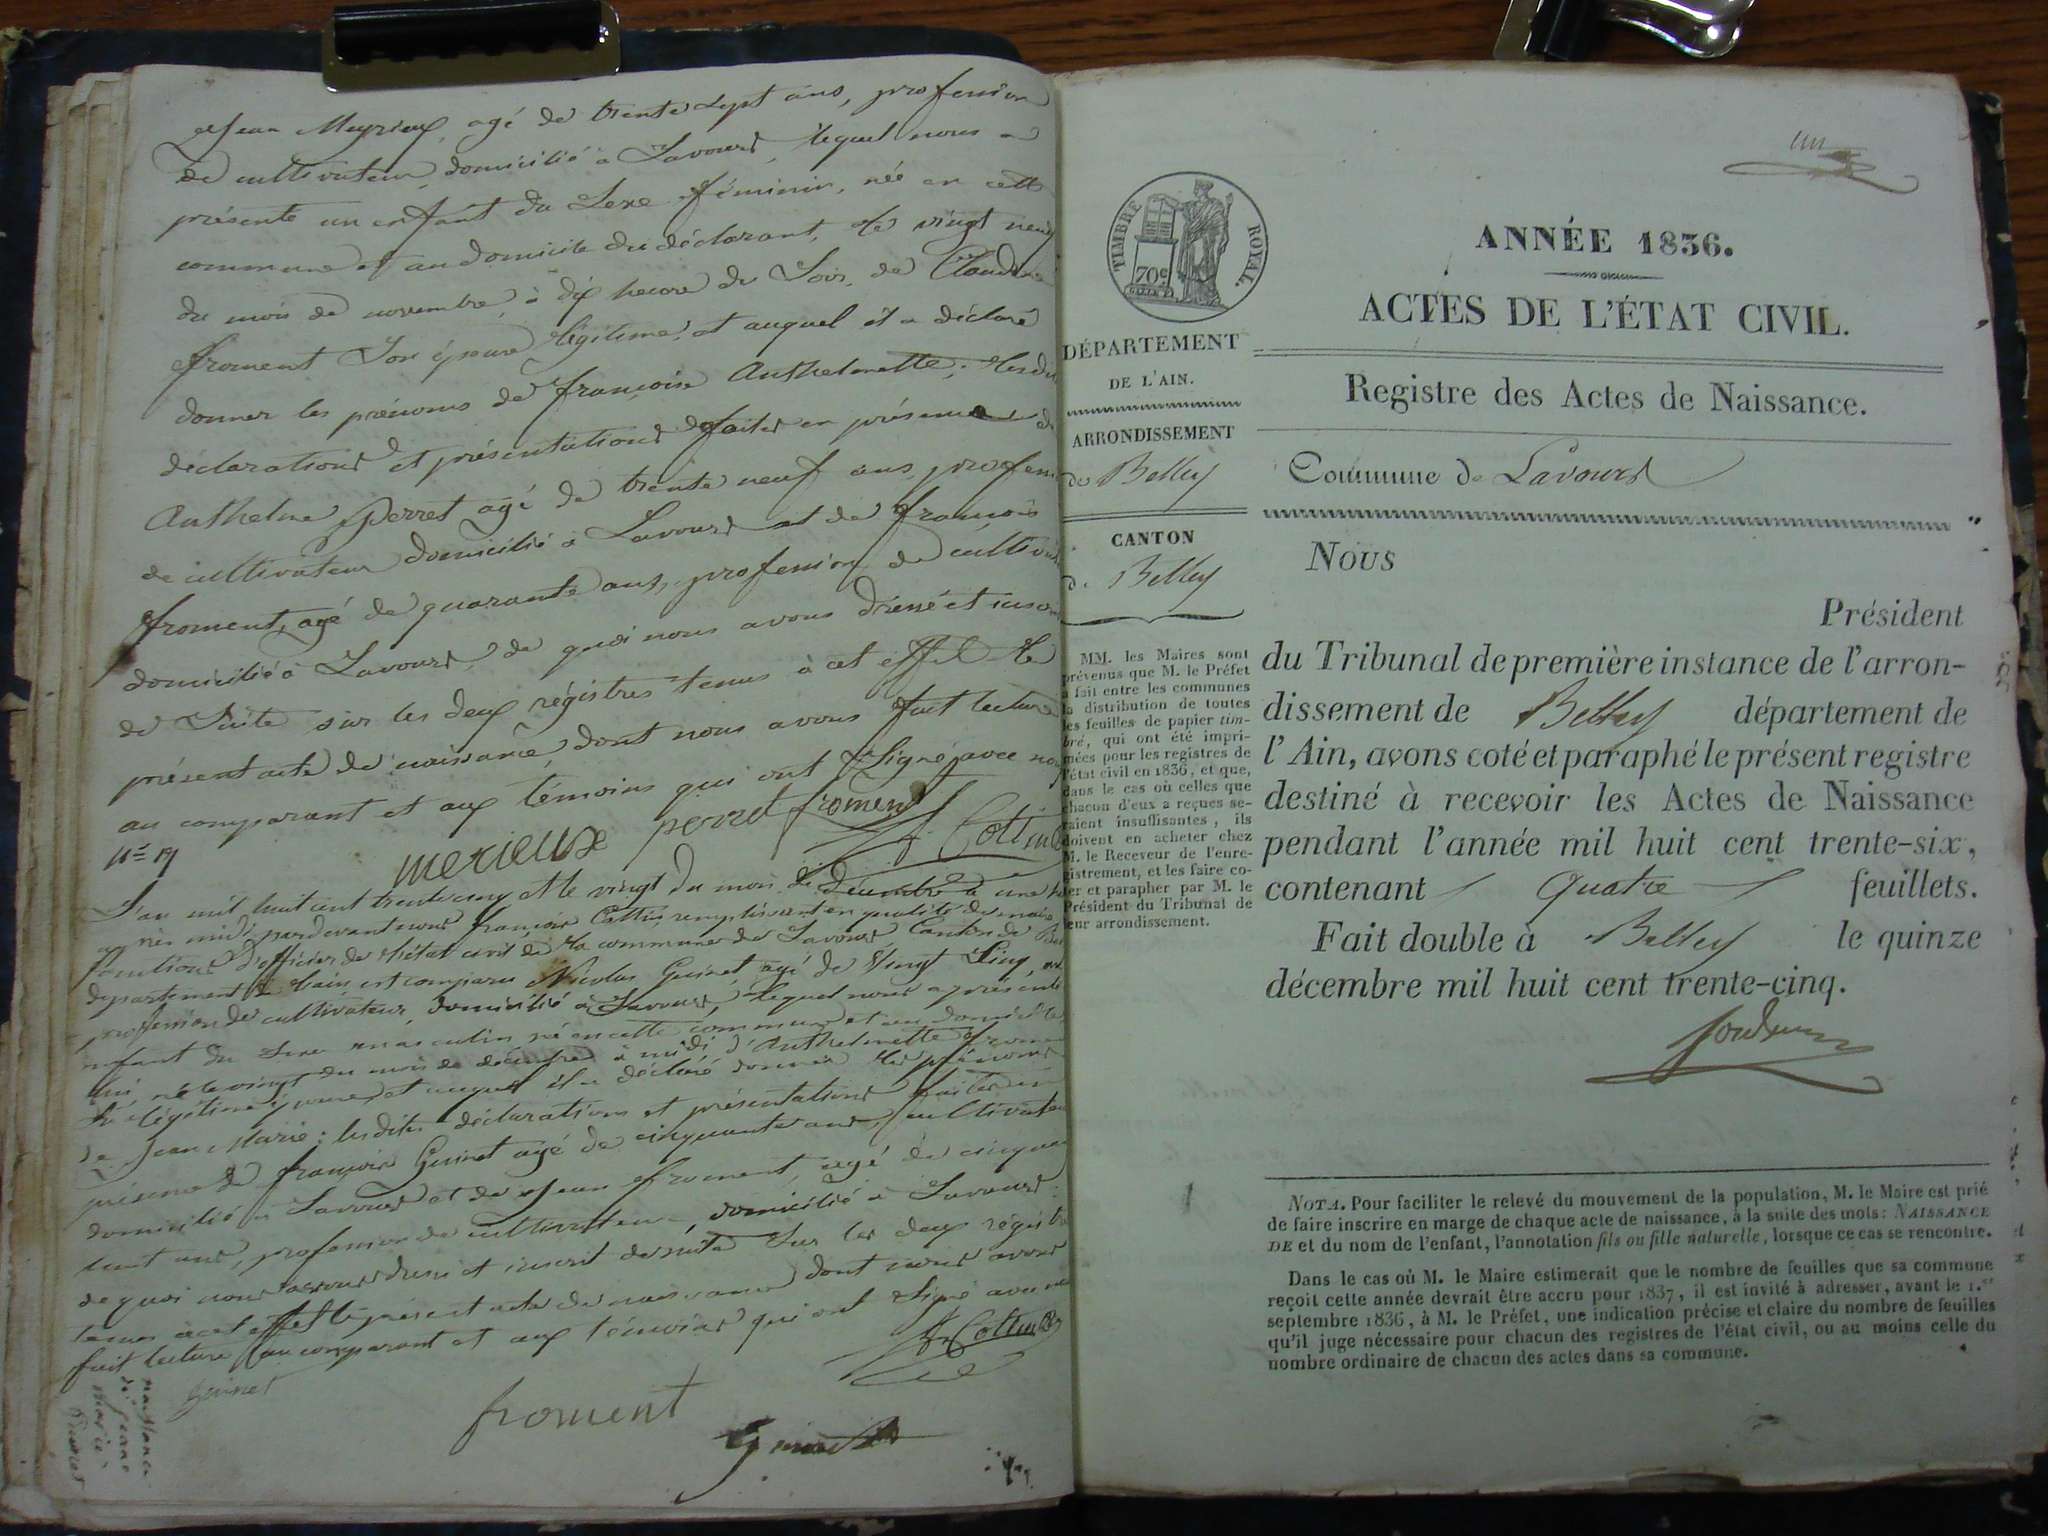 Jean Meyrieux, agé de trente sept ans, profession
de cultivateur, domicilié à Lavours, lequel nous a
présenté un enfant du Sexe féminin, née en cette
commune et au domicile du déclarant, le vingt neuf
du mois de novembre, à dix heure du Soir, de Claudine
froment Son épouse légitime, et auquel il a déclaré
donner les prénoms de françoise Anthelmette; Lesdi
déclarations et présentations faites en présence de
Anthelme perret agé de trente neuf ans, profession
de cultivateur domicilié à Lavours et de françois
froment, agé de quarante ans, profession de cultiva
domicilié à Lavours, de quoi nous avons dressé et inscri
de Suite sur les deux régistres tenus à cet effet le
présent acte de naissance, dont nous avons fait lecture
au comparant et aux témoins qui ont Signé avec nous
merieux perret froment Cottin
N.º 19
L'an mil huit cent trente cinq et le vingt du mois de décembre à une h
après midi, pardevant nous françois Cottin, remplissant en qualité de maire
fonctions d'officier de l'état civil de la commune de Lavours Canton de Be
département de l'ain, est comparu Nicolas Guinet, agé de Vingt Cinq
profession de cultivateur, domicilié à Lavours, lequel nous a présenté
enfant du Sexe masculin né en cette commune et au domicile
lui, né le vingt du mois de décembre à midi d'Anthelmette froment
légitime épouse, et auquel il a déclaré donner les prénoms
de Jean Marie: lesdites déclarations et présentations faites en
présence de françois Guinet agé de cinquante ans, cultivateur
domicilié à Lavours et de Jean froment, agé de cinquan
ans, profession de cultivateur, domicilié à Lavours:
de quoi nous avons dressé et inscrit de suite Sur les deux régist
tenus à cet effet le présent acte de naissance dont nous avons
fait lecture au comparant et aux témoins qui ont Signé avec nous
Guinet
froment
Cottin
naissance
de jeane
marie
Guinet
un
TIMBRE ROYAL.
70c
ANNÉE 1836.
ACTES DE L'ÉTAT CIVIL.
Registre des Actes de Naissance.
Commune de Lavours
DÉPARTEMENT
DE L'AIN.
ARRONDISSEMENT
de Belley
CANTON
de Belley
MM. les Maires sont
prévenus que M. le Préfet
a fait entre les communes
la distribution de toutes
les feuilles de papier tim-
bré, qui ont été impri-
mées pour les registres de
l'état civil en 1836, et que,
dans le cas où celles que
chacun d'eux a reçues se-
raient insuffisantes, ils
doivent en acheter chez
M. le Receveur de l'enre-
gistrement, et les faire co-
ter et parapher par M. le
Président du Tribunal de
leur arrondissement.
Nous
Président
du Tribunal de première instance de l'arron-
dissement de Belley département de
l'Ain, avons coté et paraphé le présent registre
destiné à recevoir les Actes de Naissance
pendant l'année mil huit cent trente-six,
contenant Quatre feuillets.
Fait double à Belley le quinze
décembre mil huit cent trente-cinq.
NOTA. Pour faciliter le relevé du mouvement de la population, M. le Maire est prié
de faire inscrire en marge de chaque acte de naissance, à la suite des mots: NAISSANCE
DE et du nom de l'enfant, l'annotation fils ou fille naturelle, lorsque ce cas se rencontre.
Dans le cas où M. le Maire estimerait que le nombre de feuilles que sa commune
reçoit cette année devrait être accru pour 1837, il est invité à adresser, avant le 1.er
septembre 1836, à M. le Préfet, une indication précise et claire du nombre de feuilles
qu'il juge nécessaire pour chacun des registres de l'état civil, ou au moins celle du
nombre ordinaire de chacun des actes dans sa commune.